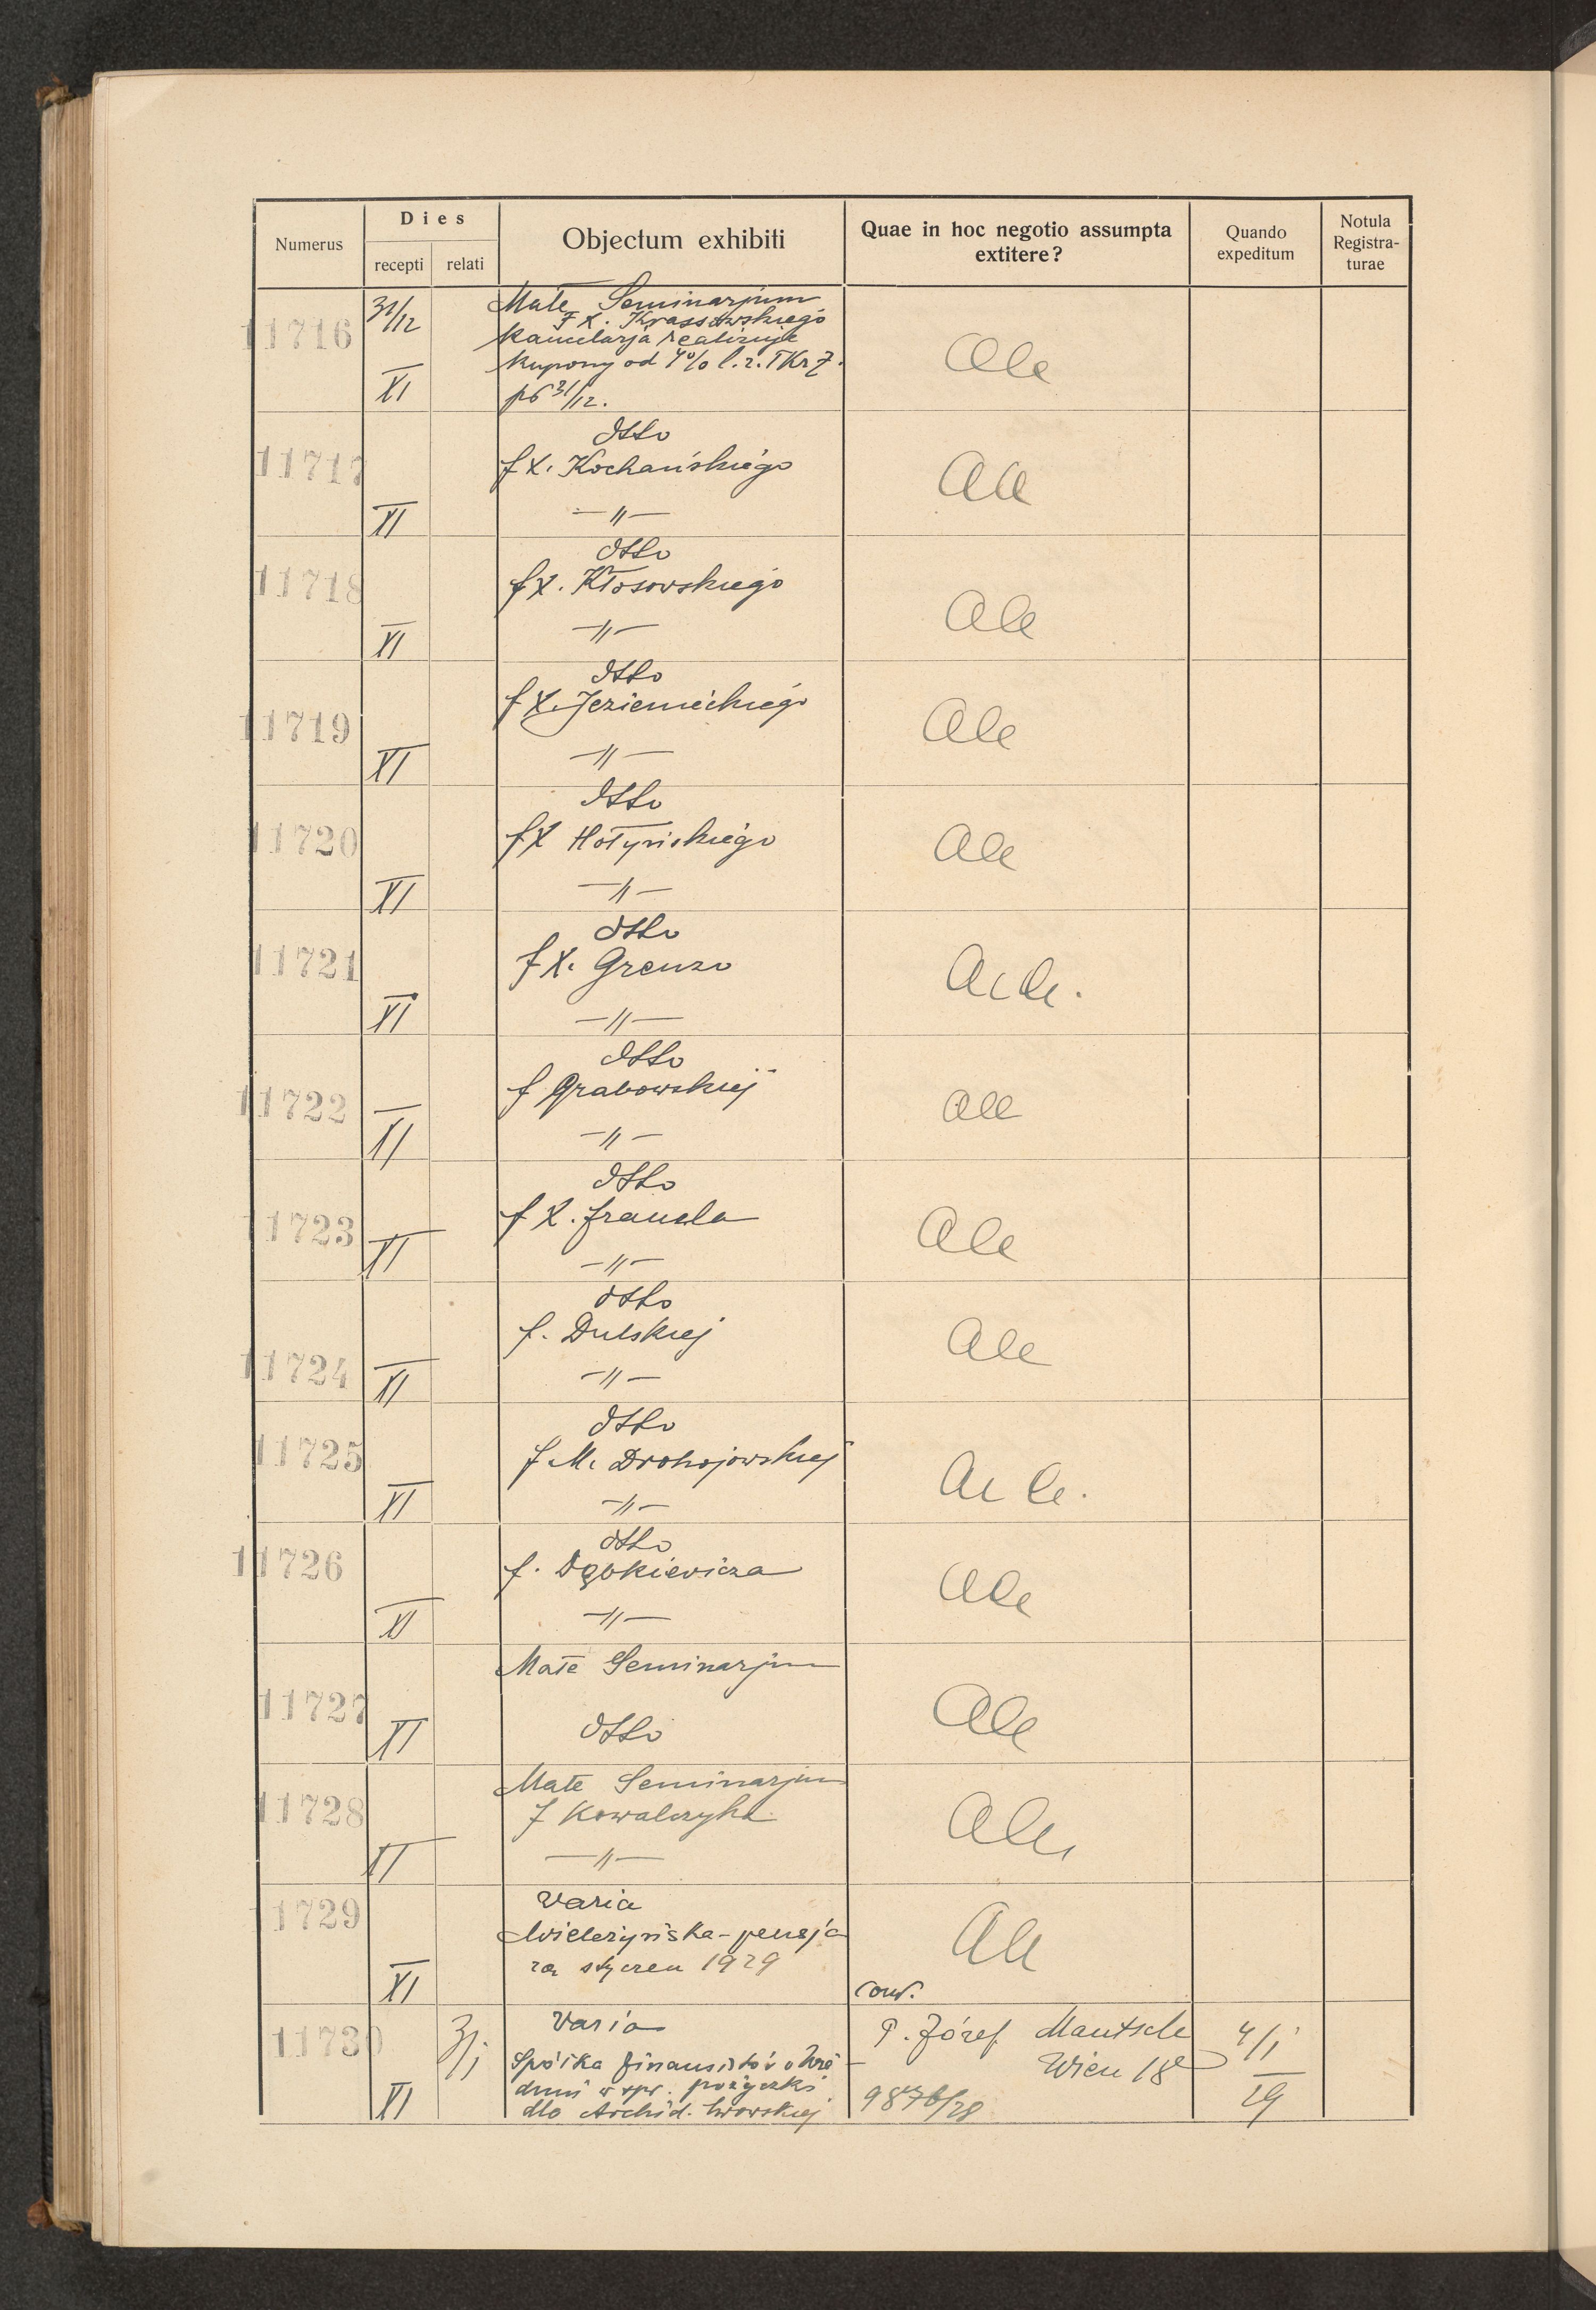 Numerus
Dies
recepti
relati
Objectum exhibiti
Quae in hoc negotio assumpta
extitere?
Quando
expeditum
Notula
Registra-
turae
11716
31/12
XI
Małe Seminarjum
F X. Krassowskiego
Kancelarja realizuje
kupony od 4% l. z. TKrZ.
pб 31/12.
Ale
11717
XI
dtto
f X. Kochańskiego
—〃—
Ale
11718
XI
dtto
f X. Kłosowskiego
—〃—
Ale
11719
XI
dtto
f X. Jezienickiego
—〃—
Ale
11720
XI
dtto
f X Hołyńskiego
—〃—
Ale
11721
XI
dtto
f X. Grenzo
—〃—
11722
XI
dtto
f Grabowskiej
—〃—
Ale
11723
XI
dtto
f X. Francla
—〃—
Ale
11724
XI
dtto
f. Dulskiej
—〃—
Ale
11725
XI
dtto
f M. Drohojowskiej
—〃—
11726
XI
dtto
f. Dąbkiewicza
—〃—
Ale
11727
XI
Małe Seminarjum
dtto
Ale
11728
XI
Małe Seminarjum
f Kowalczyka
—〃—
Ale
11729
XI
Varia
Wieleżyńska - pensja
za styczeń 1929
Ale
11730
XI
3/I
Varia
Spółka finansistów
w spr. pożyczki
dla Archid. lwowskiej
conv.
P. Józef Mautsche
Wien 18
9876/28
4/I
29